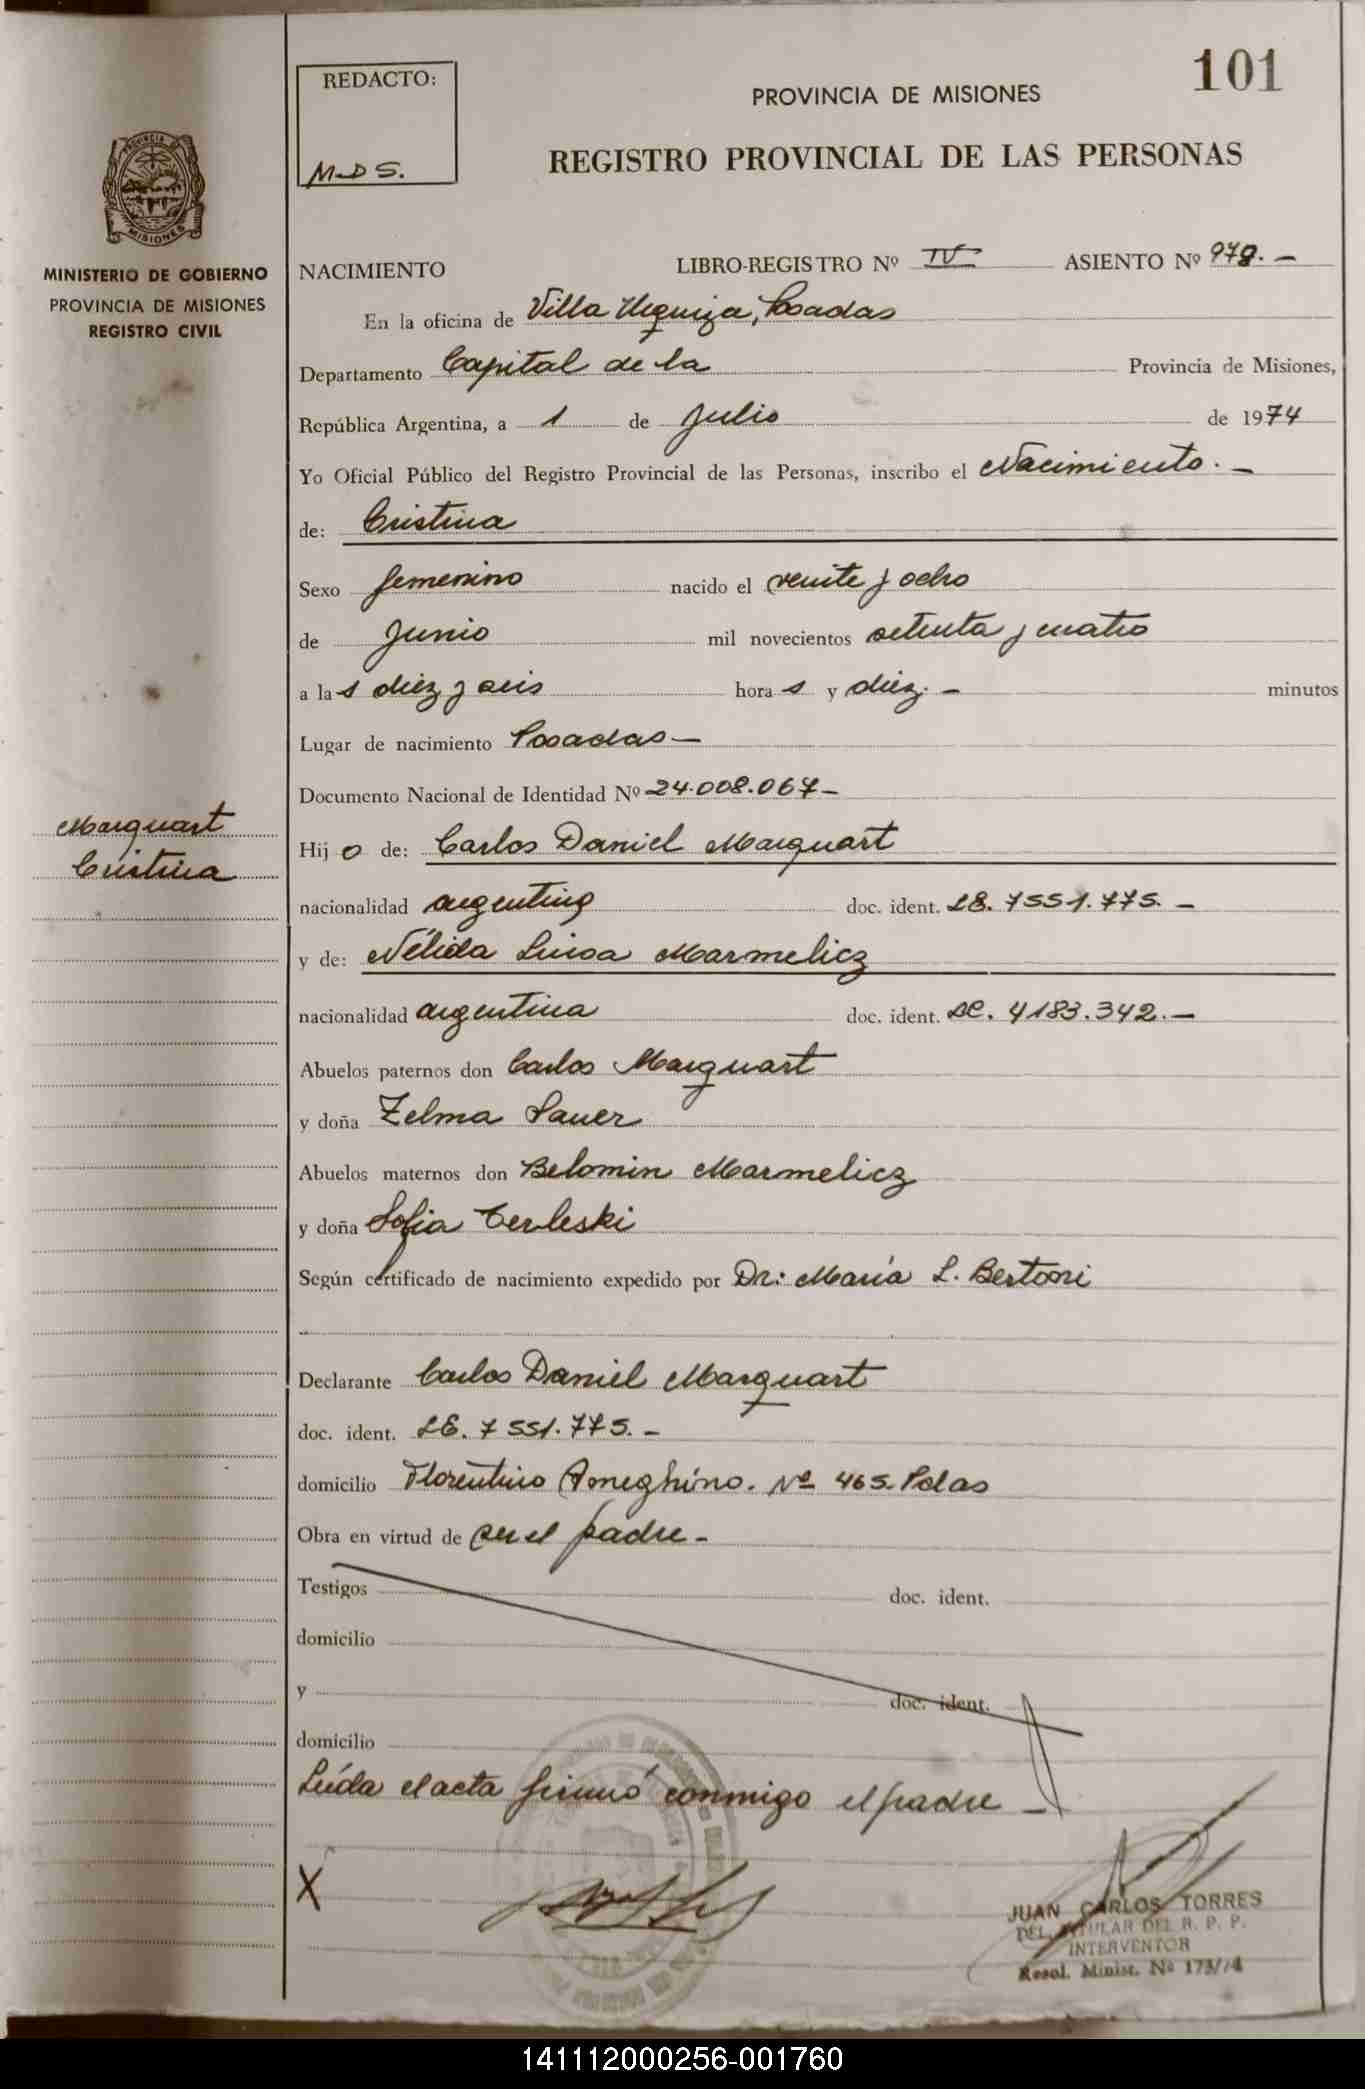 101
REDACTO:
M-D S.
PROVINCIA DE MISIONES
REGISTRO PROVINCIAL DE LAS PERSONAS
PROVINCIA DE
MISIONES
MINISTERIO DE GOBIERNO
PROVINCIA DE MISIONES
REGISTRO CIVIL
NACIMIENTO LIBRO-REGISTRO Nº IV ASIENTO Nº 979.-
En la oficina de Villa Urquiza, Posadas
Departamento Capital de la Provincia de Misiones,
República Argentina, a 1 de Julio de 1974
Yo Oficial Público del Registro Provincial de las Personas, inscribo el Nacimiento.-
de: Cristina
Sexo femenino nacido el veinte y ocho
de Junio mil novecientos setenta y cuatro
a las diez y seis horas y diez.- minutos
Lugar de nacimiento Posadas-
Documento Nacional de Identidad Nº 24.008.067-
Marquart
Cristina
Hijo de: Carlos Daniel Marquart
nacionalidad argentino doc. ident. LE. 7551.775.-
y de: Nélida Luisa Marmelicz
nacionalidad argentina doc. ident. LC. 4183.342.-
Abuelos paternos don Carlos Marquart
y doña Zelma Sauer
Abuelos maternos don Belomin Marmelicz
y doña Sofia Terleski
Según certificado de nacimiento expedido por Dr: María L. Bertoni
Declarante Carlos Daniel Marquart
doc. ident. LE. 7551.775.-
domicilio Florentino Ameghino. Nº 465. Pdas
Obra en virtud de ser el padre-
Testigos doc. ident.
domicilio
y doc. ident.
domicilio
Leída el acta firmó conmigo el padre-
X
JUAN CARLOS TORRES
DEL TITULAR DEL R. P. P.
INTERVENTOR
Resol. Minist. Nº 173/74
141112000256-001760